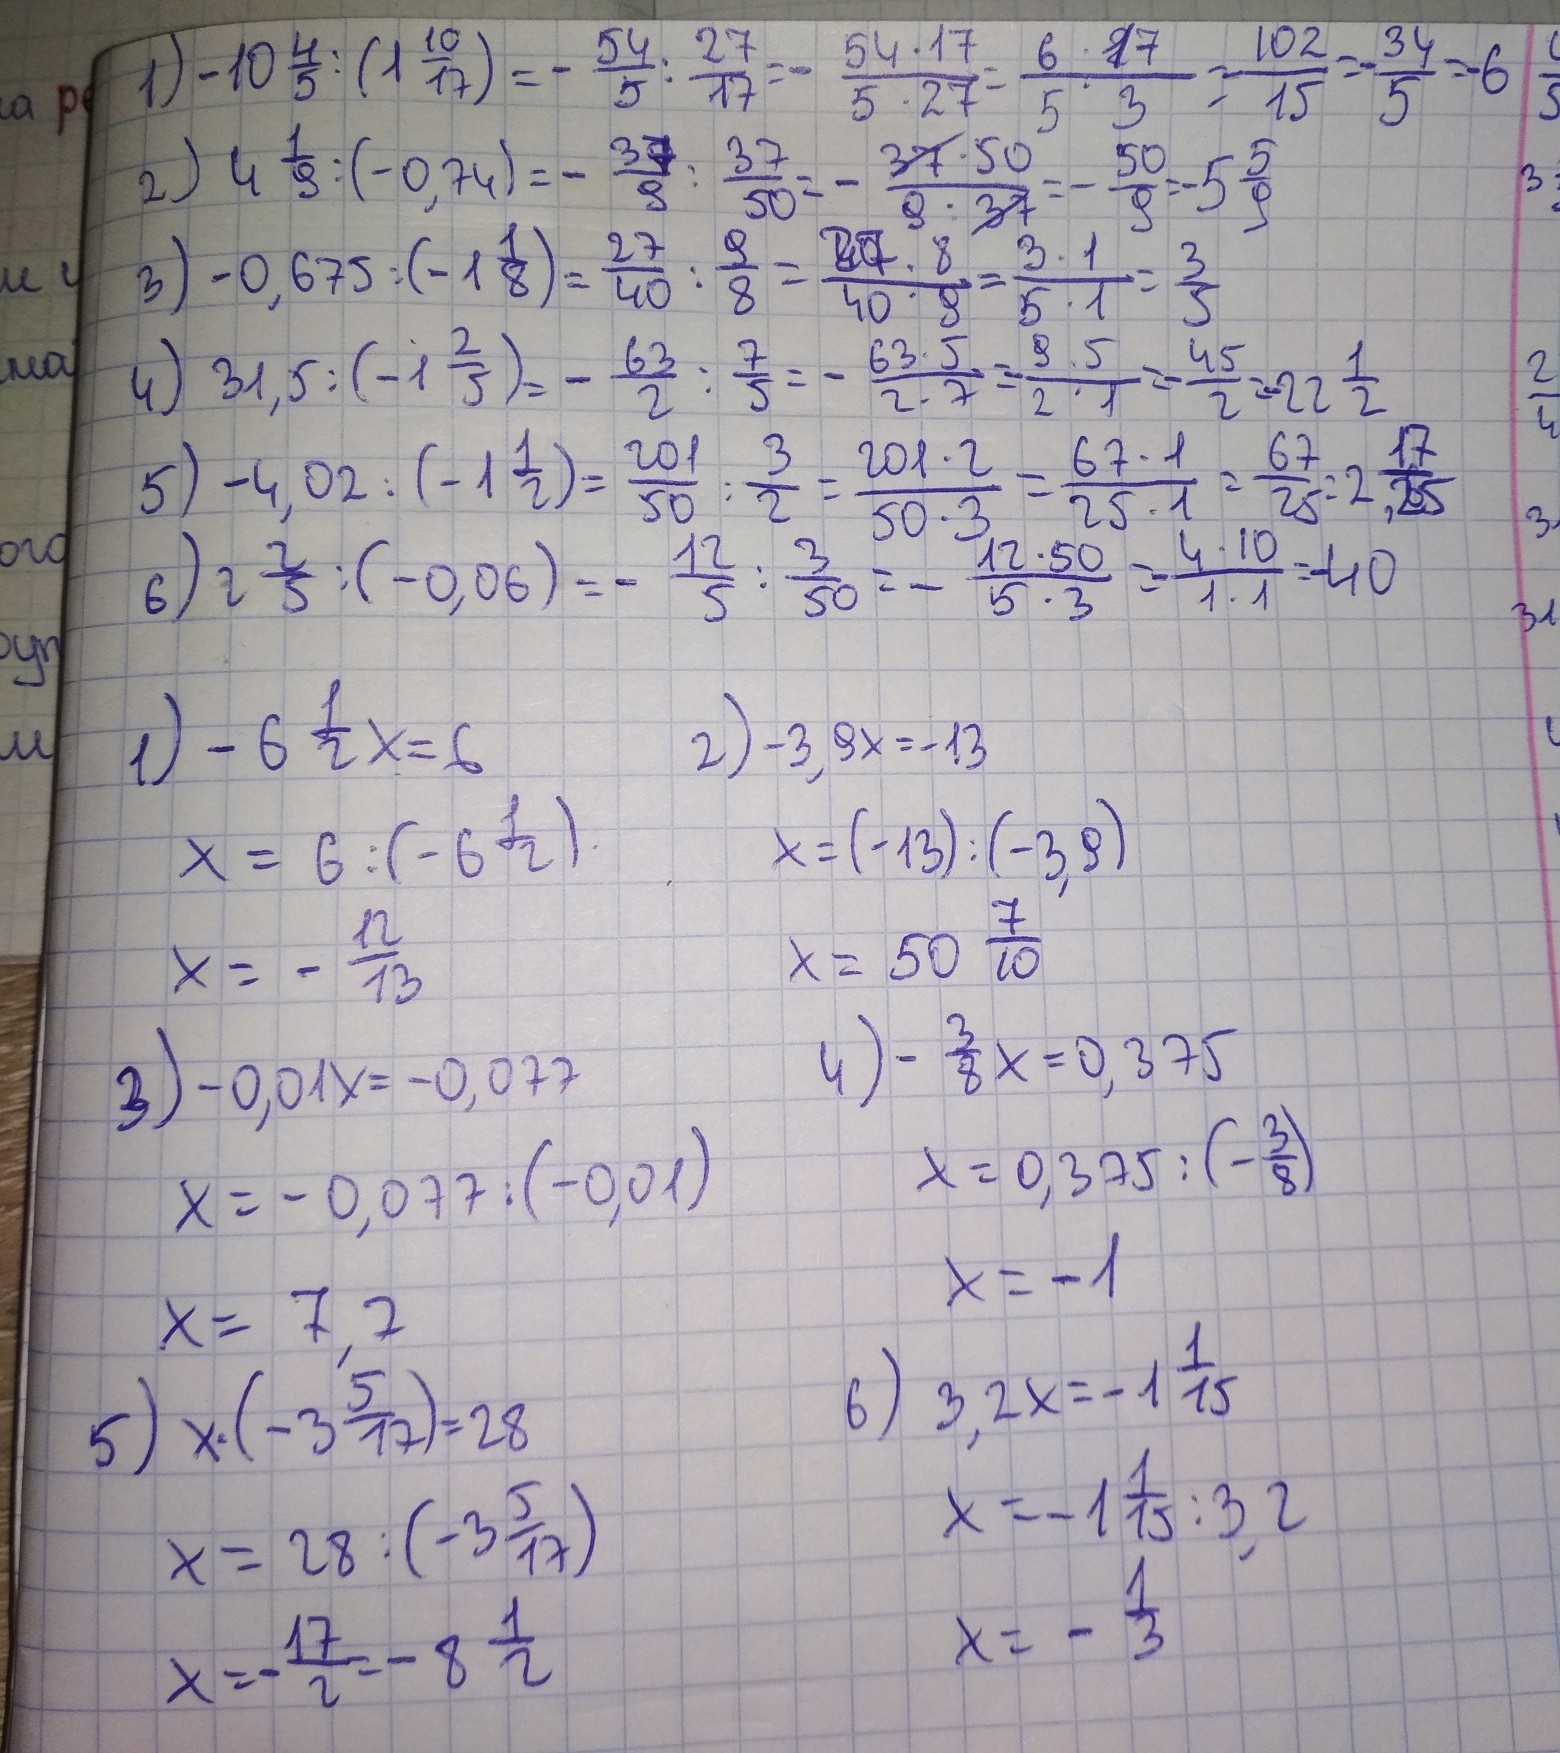 1) -10 4/5 : (1 10/17) = - 54/5 : 27/17 = - 54·17/5·27 = 6·17/5·3 = - 102/15 = - 34/5 = -6
2) 4 1/9 : (-0,74) = - 37/9 : 37/50 = - 37·50/9·37 = - 50/9 = -5 5/9
3) -0,675 : (-1 1/8) = 27/40 : 9/8 = 27·8/40·9 = 3·1/5·1 = 3/5
4) 31,5 : (-1 2/5) = - 63/2 : 7/5 = - 63·5/2·7 = - 9·5/2·1 = - 45/2 = -22 1/2
5) -4,02 : (-1 1/2) = 201/50 : 3/2 = 201·2/50·3 = 67·1/25·1 = 67/25 = 2 17/25
6) 2 2/5 : (-0,06) = - 12/5 : 3/50 = - 12·50/5·3 = - 4·10/1·1 = -40
1) - 6 1/2 x = 6
x = 6 : (-6 1/2)
x = - 12/13
2) -3,9x = -13
x = (-13) : (-3,9)
x = 50 7/10
3) -0,01x = -0,077
x = -0,077 : (-0,01)
x = 7,7
4) - 3/8 x = 0,375
x = 0,375 : (- 3/8)
x = -1
5) x·(-3 5/17) = 28
x = 28 : (-3 5/17)
x = - 17/2 = - 8 1/2
6) 3,2x = -1 1/15
x = -1 1/15 : 3,2
x = - 1/3